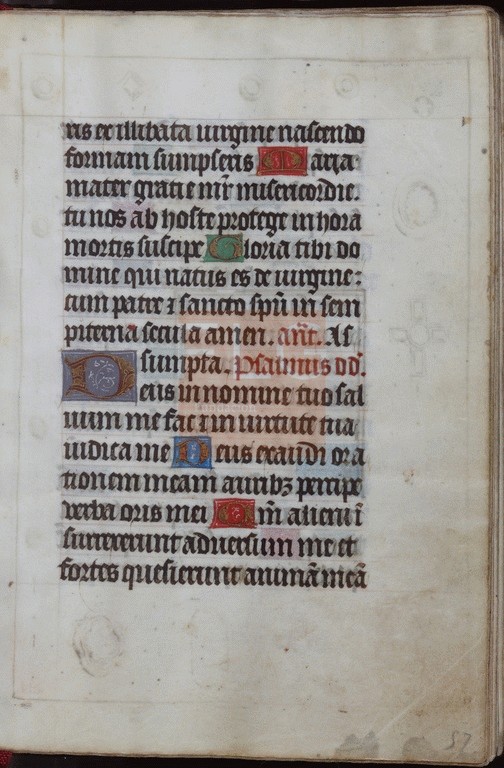 ris et illibata uirgine nascendo
formam sumpseris Maria
mater gratie mr̄ misericordie.
tu nos ab hoste protege in hora
mortis suscipe Gloria tibi do
mine qui natus es de uirgine:
cum patre ⁊ sancto spū in sem
piterna secula amen. ant̄. As
sumpta. Psalmus dd̄.
Deus in nomine tuo sal
uum me fac ⁊ in uirtute tua
iudica me Deus exaudi ora
tionem meam auribꝫ percipe
verba oris mei Qm̄ alieni ī
surrexerunt aduersum me et
fortes quesierunt animā meā
57